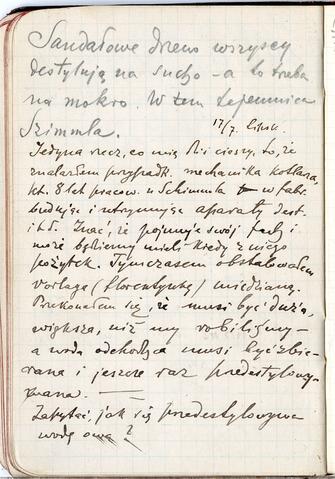 Sandałowe drzewo wszyscy
destylują na sucho – a to trzeba
na mokro. W tem tajemnica
Szimmla.
17/7. Lipsk.
Jedyna rzecz, co mię cieszy, to, że
znalazłem przypadk. mechanika kotlarza,
kt. 8 lat pracow. u Schimmla w fabr.
budując i utrzymując aparaty dest.
i t.d. Znać, że pojmuje swój fach i
może będziemy mieli kiedy z niego
pożytek. Tymczasem obstalowałem
vorlagę (florentynkę) miedzianą.
Przekonałem się, że musi być duża,
większa, niż my robiliśmy –
a woda odchodząca musi być zbie-
rana i jeszcze raz predestylowy-
wana. —
Zapytać jak się predestylowywa
wodę ową?